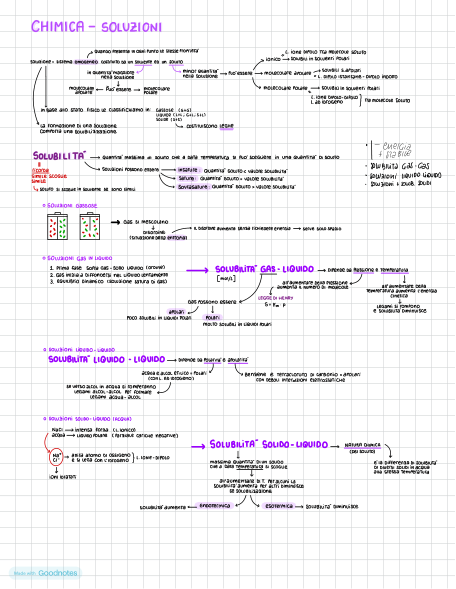 CHIMICA - SOLUZIONI
quando presenta in ogni punto le stesse proprietà
Soluzione = sistema omogeneo costituito da un solvente ed un soluto
in quantità maggiore nella soluzione
può essere
molecolare apolare
molecolare polare
minor quantità nella soluzione
può essere
ionico → solubili in solventi polari
L. ione dipolo tra molecole soluto
molecolare apolare
solubili s. apolari
L. dipolo istantaneo - dipolo indotto
molecolare polare → solubili in solventi polari
L. ione dipolo-dipolo
L. ad idrogeno
tra molecole soluto
in base allo stato fisico le classifichiamo in:
GASSOSE (G+G)
LIQUIDE (L+L, G+L, S+L)
SOLIDE (S+S)
costituiscono leghe
La formazione di una soluzione comporta una solubilizzazione
SOLUBILITÀ
quantità massima di soluto che a data temperatura si può sciogliere in una quantità di soluto
ricorda
simile scioglie simile
soluto si scioglie in solvente se sono simili
soluzioni possono essere
insature: quantità soluto < valore solubilità
sature: quantità soluto = valore solubilità
sovrasature: quantità soluto > valore solubilità
- energia
+ stabile
• solubilità gas-gas
• soluzioni liquido liquido
• soluzioni e solub. solidi
SOLUZIONI GASSOSE
gas si mescolano
disordine
(funzione dell'entropia)
il disordine aumenta senza richiedere energia → serve solo spazio
SOLUZIONI GAS IN LIQUIDO
1. Prima fase: soffia gas - sotto liquido (ordine)
2. gas inizia a diffondersi nel liquido lentamente
3. equilibrio dinamico (soluzione satura di gas)
SOLUBILITÀ GAS - LIQUIDO
[mol/L]
dipende da pressione e temperatura
all'aumentare della pressione aumenta il numero di molecole
LEGGE DI HENRY
S = K · P
all'aumentare della temperatura aumenta l'energia cinetica
legami si rompono e solubilità diminuisce
Gas possono essere
apolari
poco solubili in liquidi polari
polari
molto solubili in liquidi polari
SOLUZIONI LIQUIDO-LIQUIDO
SOLUBILITÀ LIQUIDO - LIQUIDO
dipende da polarità e apolarità
acqua e alcol etilico = polari
(con L. ad idrogeno)
se verso alcol in acqua si romperanno legami alcol-alcol per formare legami acqua-alcol
benzene e tetracloruro di carbonio = apolari
con deboli interazioni elettrostatiche
SOLUZIONI SOLIDO-LIQUIDO (ACQUA)
NaCl → intensa forza (L. ionico)
acqua → liquido polare (parziale cariche negative)
Na⁺
Cl⁻
attira atomo di ossigeno
e si lega con l'idrogeno
L. ione-dipolo
ioni idratati
SOLUBILITÀ SOLIDO - LIQUIDO
natura chimica
(del soluto)
è la differenza di solubilità di diversi solidi in acqua alla stessa temperatura
massima quantità di un soluto che a data temperatura si scioglie
all'aumentare di T. per alcuni la solubilità aumenta per altri diminuisce
se solubilizzazione
solubilità aumenta
endotermica
esotermica
solubilità diminuisce
Made with Goodnotes